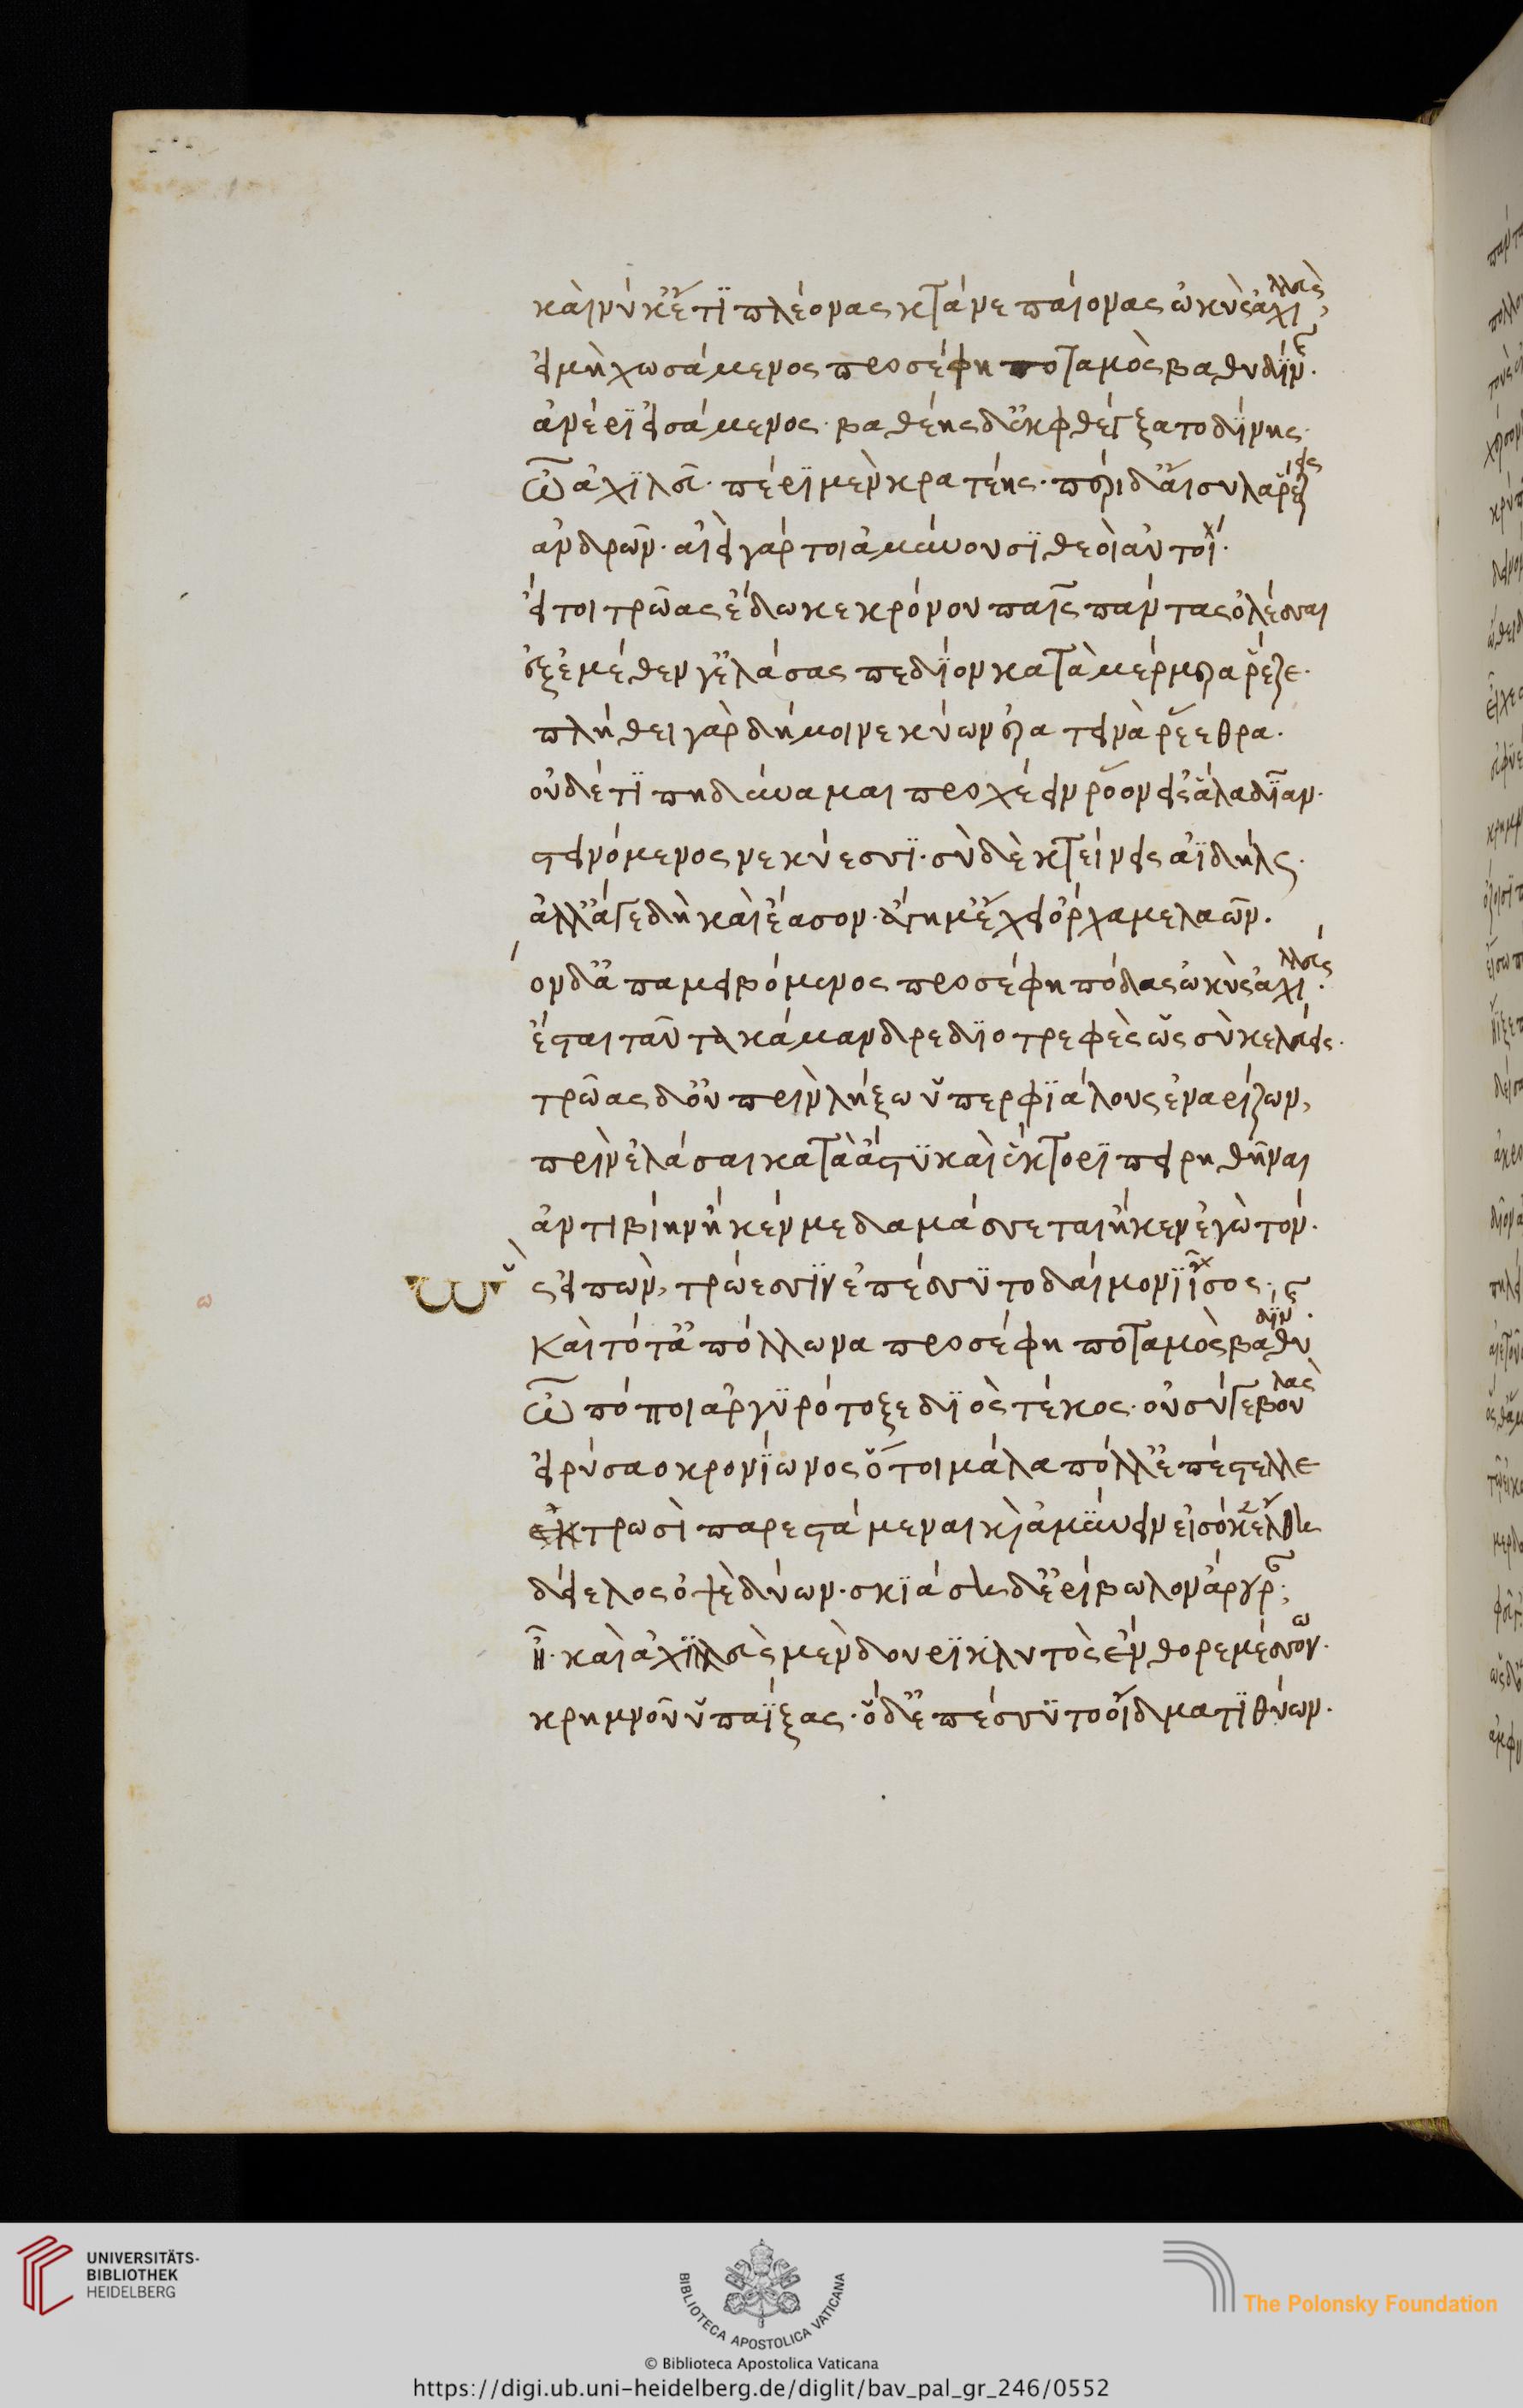 καί νύ κ' ἔτι πλέονας κτάνε παίονας ὠκὺς ἀχιλλεὺς,
εἰ μὴ χωσάμενος προσέφη ποταμὸς βαθυδίνης.
ἀνέρι εἰσάμενος· βαθέης δ' ἐκφθέγξατο δίνης·
ὦ ἀχιλεῦ· πέρι μὲν κρατέεις· περὶ δ' αἴσυλα ῥέζεις
ἀνδρῶν· αἰεὶ γάρ τοι ἀμύνουσι θεοὶ αὐτοί·
εἴ τοι τρῶας ἔδωκε κρόνου παῖς πάντας ὀλέσσαι
ἐξ ἐμέθεν γ' ἐλάσας πεδίον κατὰ μέρμερα ῥέζε·
πλήθει γὰρ δή μοι νεκύων ἐρατεινὰ ῥέεθρα.
οὐδέ τί πη δύναμαι προχέειν ῥόον εἰς ἅλα δῖαν·
στεινόμενος νεκύεσσι· σὺ δὲ κτείνεις ἀϊδήλως.
ἀλλ' ἄγε δὴ καὶ ἔασον· ἄγη μ' ἔχει ὄρχαμε λαῶν.
τὸν δ' ἀπαμειβόμενος προσέφη πόδας ὠκὺς ἀχιλλεύς·
ἔσται ταῦτα σκάμανδρε διοτρεφὲς ὡς σὺ κελεύεις·
τρῶας δ' οὐ πρὶν λήξω ὑπερφιάλους ἐναρίζων,
πρὶν ἐλάσαι κατὰ ἄστυ καὶ ἕκτορι πειρηθῆναι
ἀντιβίην ἤ κέν με δαμάσσεται ἤ κεν ἐγὼ τόν·
ὣς εἰπὼν, τρώεσσιν ἐπέσσυτο δαίμονι ἶσος·
καὶ τότ' ἀπόλλωνα προσέφη ποταμὸς βαθυδίνης·
ὦ πόποι ἀργυρότοξε διὸς τέκος· οὐ σύ γε βουλὰς
εἰρύσαο κρονίωνος ὅ τοι μάλα πόλλ' ἐπέτελλε
τρωσὶ παρεστάμεναι καὶ ἀμύνειν εἰσόκεν ἔλθῃ
δείελος ὀψὲ δύων· σκιάσῃ δ' ἐρίβωλον ἄρουραν·
ἦ· καὶ ἀχιλλεὺς μὲν δουρικλυτὸς ἔνθορε μέσσῳ·
κρημνοῦ ὑπαΐξας· ὃ δ' ἐπέσσυτο οἴδματι θύων·
ω
UNIVERSITÄTS-
BIBLIOTHEK
HEIDELBERG
BIBLIOTECA APOSTOLICA VATICANA
The Polonsky Foundation
© Biblioteca Apostolica Vaticana
https://digi.ub.uni-heidelberg.de/diglit/bav_pal_gr_246/0552